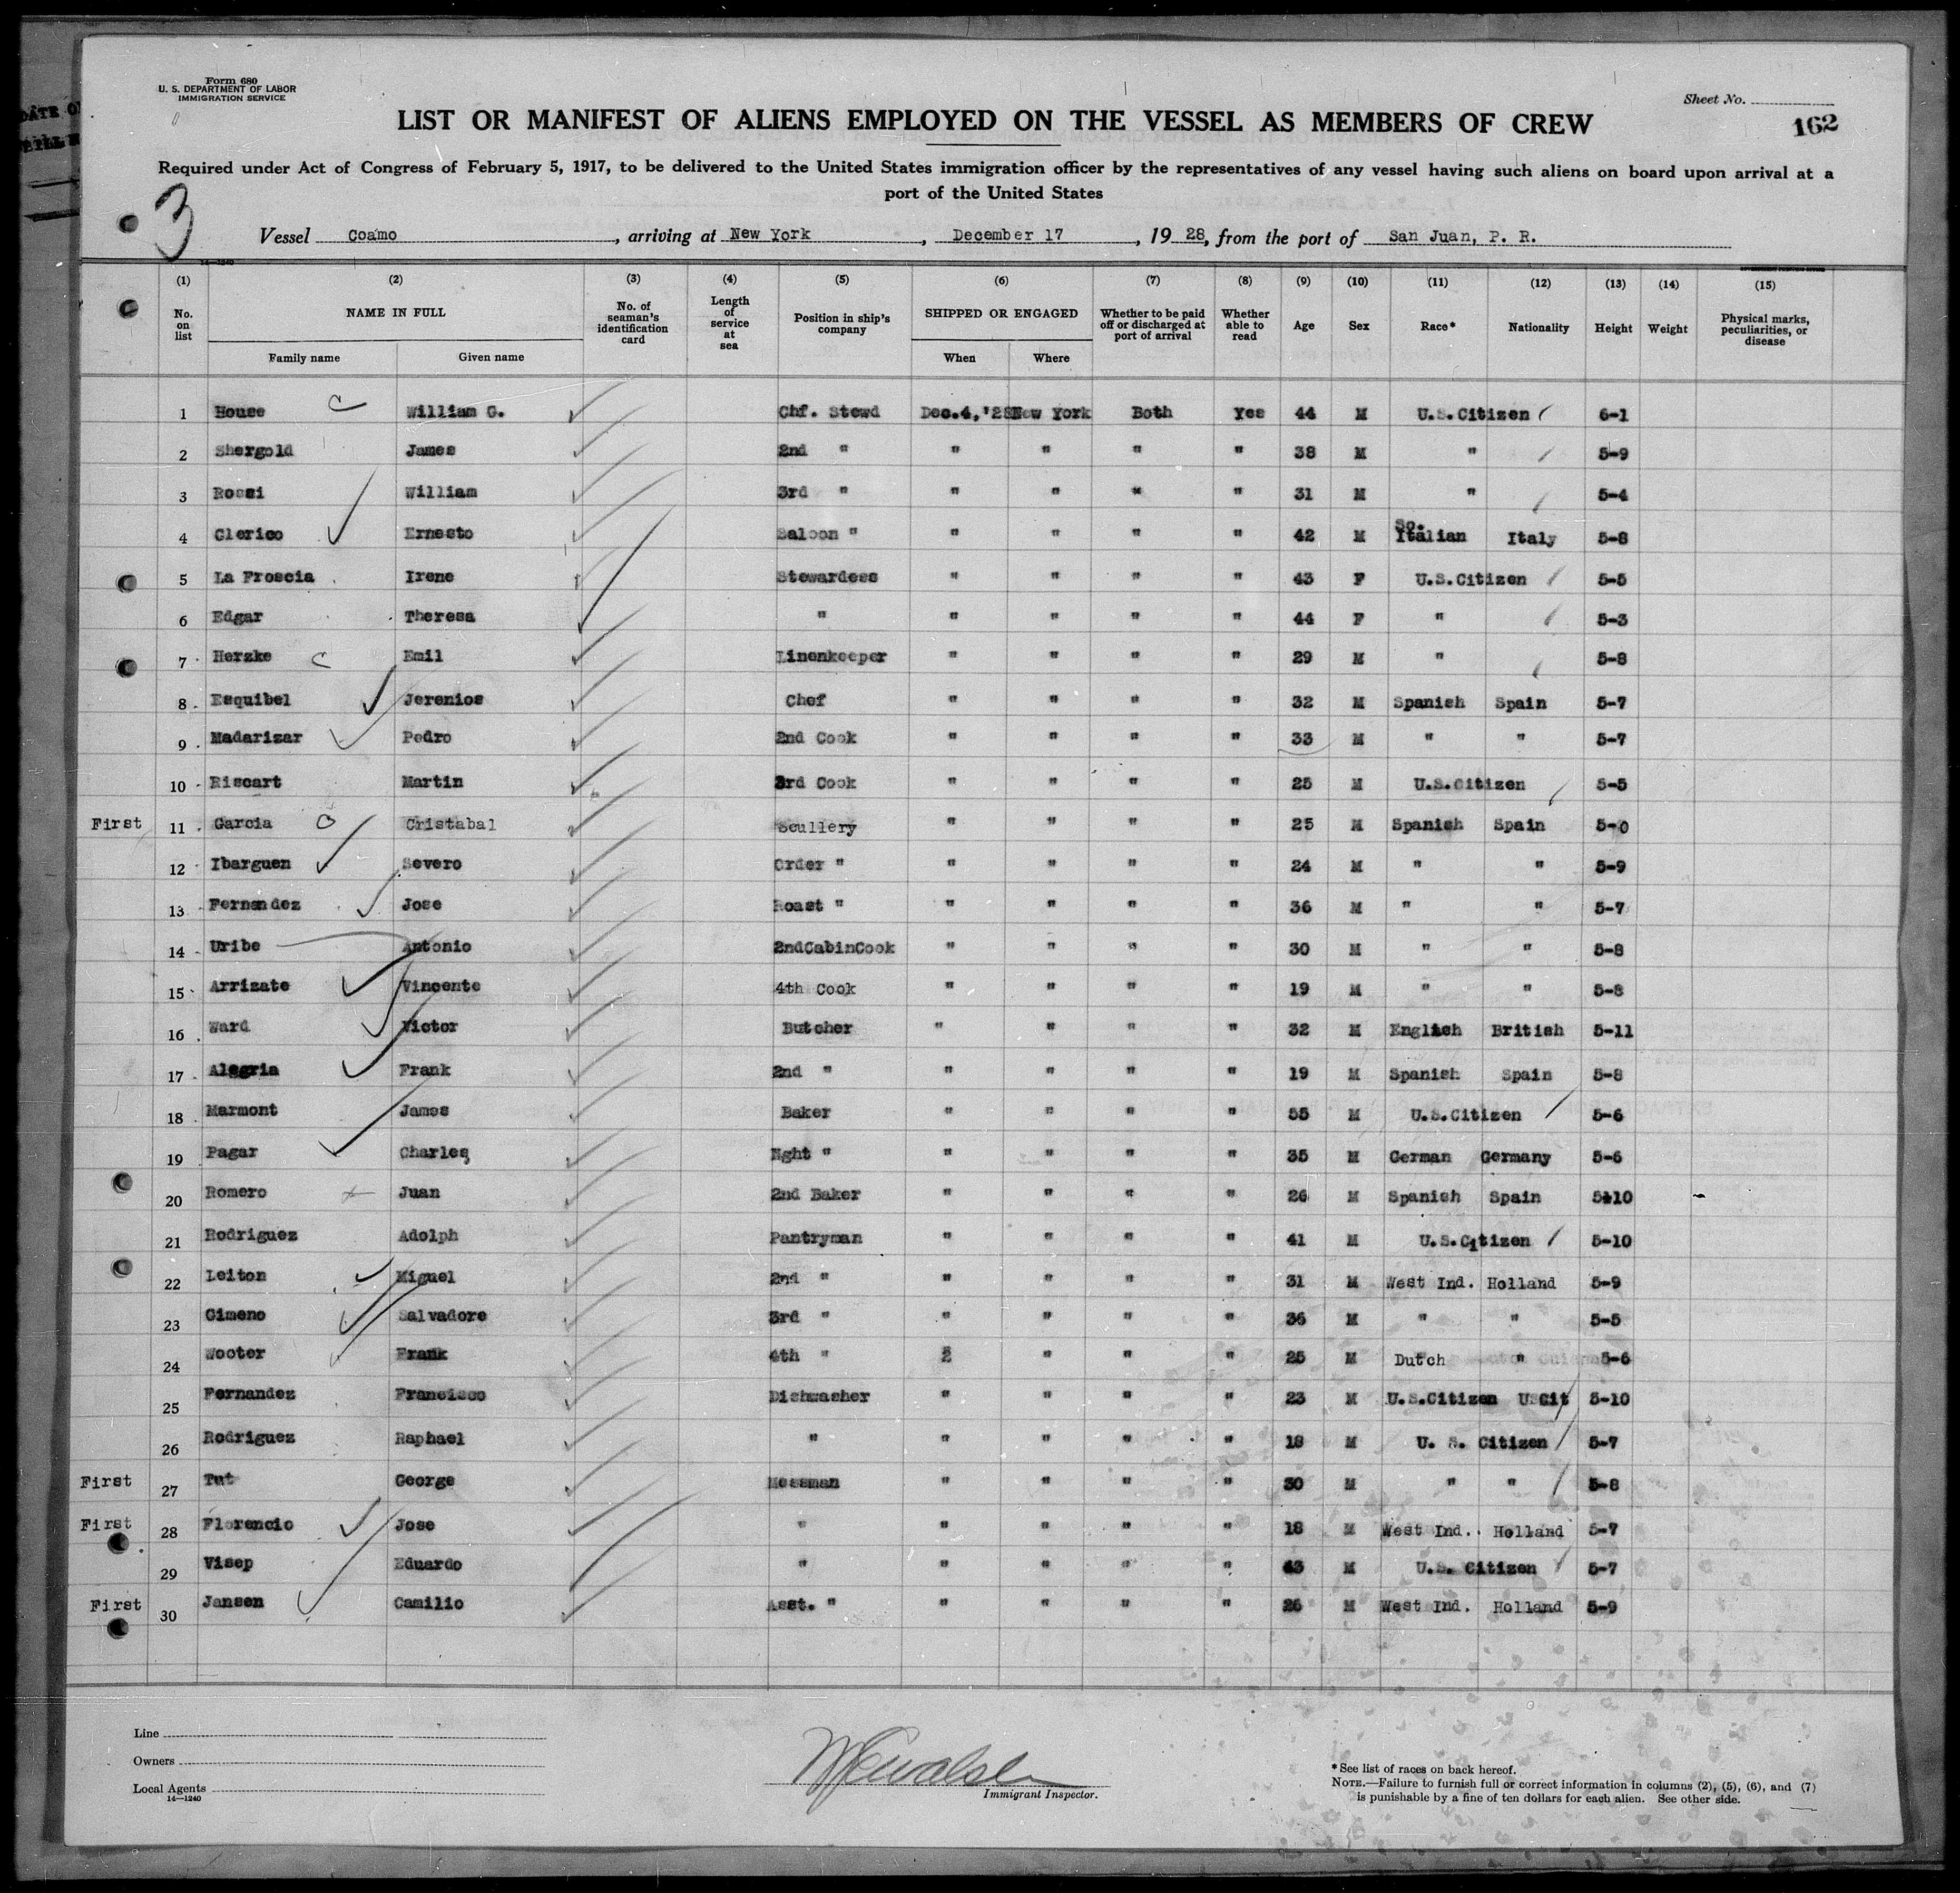 Form 680
U. S. DEPARTMENT OF LABOR
IMMIGRATION SERVICE
Sheet No.
162
LIST OR MANIFEST OF ALIENS EMPLOYED ON THE VESSEL AS MEMBERS OF CREW
Required under Act of Congress of February 5, 1917, to be delivered to the United States immigration officer by the representatives of any vessel having such aliens on board upon arrival at a
port of the United States
3
Vessel Coamo, arriving at New York, December 17, 1928, from the port of San Juan, P. R.
14—1240
(1) (2) (3) (4) (5) (6) (7) (8) (9) (10) (11) (12) (13) (14) (15)
No. on list NAME IN FULL Family name Given name No. of seaman's identification card Length of service at sea Position in ship's company SHIPPED OR ENGAGED When Where Whether to be paid off or discharged at port of arrival Whether able to read Age Sex Race* Nationality Height Weight Physical marks, peculiarities, or disease
1 House C William G. Chf. Stewd Dec.4,'28 New York Both Yes 44 M U.S.Citizen 6-1
2 Shergold James 2nd " " " " " 38 M " 5-9
3 Rossi William 3rd " " " " " 31 M " 5-4
4 Clerico Ernesto Saloon " " " " " 42 M So. Italian Italy 5-8
5 La Froscia Irene Stewardess " " " " 43 F U.S.Citizen 5-5
6 Edgar Theresa " " " " " 44 F " 5-3
7 Herzke C Emil Linenkeeper " " " " 29 M " 5-8
8 Esquibel Jerenios Chef " " " " 32 M Spanish Spain 5-7
9 Madarizar Pedro 2nd Cook " " " " 33 M " " 5-7
10 Riscart Martin 3rd Cook " " " " 25 M U.S.Citizen 5-5
First 11 Garcia Cristabal Scullery " " " " 25 M Spanish Spain 5-0
12 Ibarguen Severo Order " " " " " 24 M " " 5-9
13 Fernandez Jose Roast " " " " " 36 M " " 5-7
14 Uribe Antonio 2ndCabinCook " " " " 30 M " " 5-8
15 Arrizate Vincente 4th Cook " " " " 19 M " " 5-8
16 Ward Victor Butcher " " " " 32 M English British 5-11
17 Alegria Frank 2nd " " " " " 19 M Spanish Spain 5-8
18 Marmont James Baker " " " " 55 M U.S.Citizen 5-6
19 Pagar Charles Nght " " " " " 35 M German Germany 5-6
20 Romero Juan 2nd Baker " " " " 26 M Spanish Spain 5-10
21 Rodriguez Adolph Pantryman " " " " 41 M U.S.Citizen 5-10
22 Leiton Miguel 2nd " " " " " 31 M West Ind. Holland 5-9
23 Gimeno Salvadore 3rd " " " " " 36 M " " 5-5
24 Wooter Frank 4th " 2 " " " 25 M Dutch " 5-6
25 Fernandez Francisco Dishwasher " " " " 23 M U.S.Citizen USCit 5-10
26 Rodriguez Raphael " " " " " 18 M U. S. Citizen 5-7
First 27 Tut George Messman " " " " 30 M " " 5-8
First 28 Florencio Jose " " " " " 18 M West Ind.. Holland 5-7
29 Visep Eduardo " " " " " 43 M U.S. Citizen 5-7
First 30 Jansen Camilio Asst. " " " " " 26 M West Ind. Holland 5-9
Line
Owners
Local Agents
14—1240
Immigrant Inspector.
* See list of races on back hereof.
NOTE.—Failure to furnish full or correct information in columns (2), (5), (6), and (7)
is punishable by a fine of ten dollars for each alien. See other side.